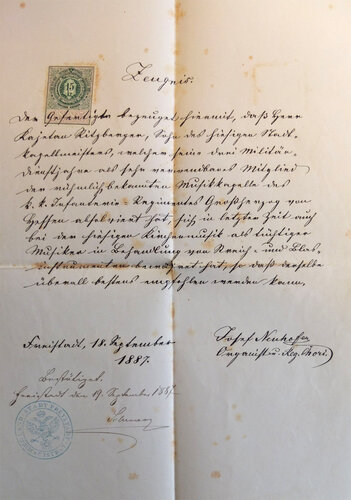 15
Zeugnis.
Der Gefertigte bezeuget hiermit, daß Herr
Kajetan Ritzberger, Sohn des hiesigen Stadt-
kapellmeisters, welcher seine drei Militär-
dienstjahre als sehr verwendbares Mitglied
der rühmlichbekannten Musikkapelle des
k. k. Infanterie-Regimentes Großherzog von
Hessen absolviert hat, sich in letzter Zeit auch
bei der hiesigen Kirchenmusik als tüchtiger
Musiker in Behandlung von Streich- und Blas-
instrumenten bewährt hat, so daß derselbe
überall bestens empfohlen werden kann.
Freistadt, 18. September
1887.
Josef Neuhofer
Organist u. Reg. Chori.
Bestätiget.
Freistadt den 19. September 1887